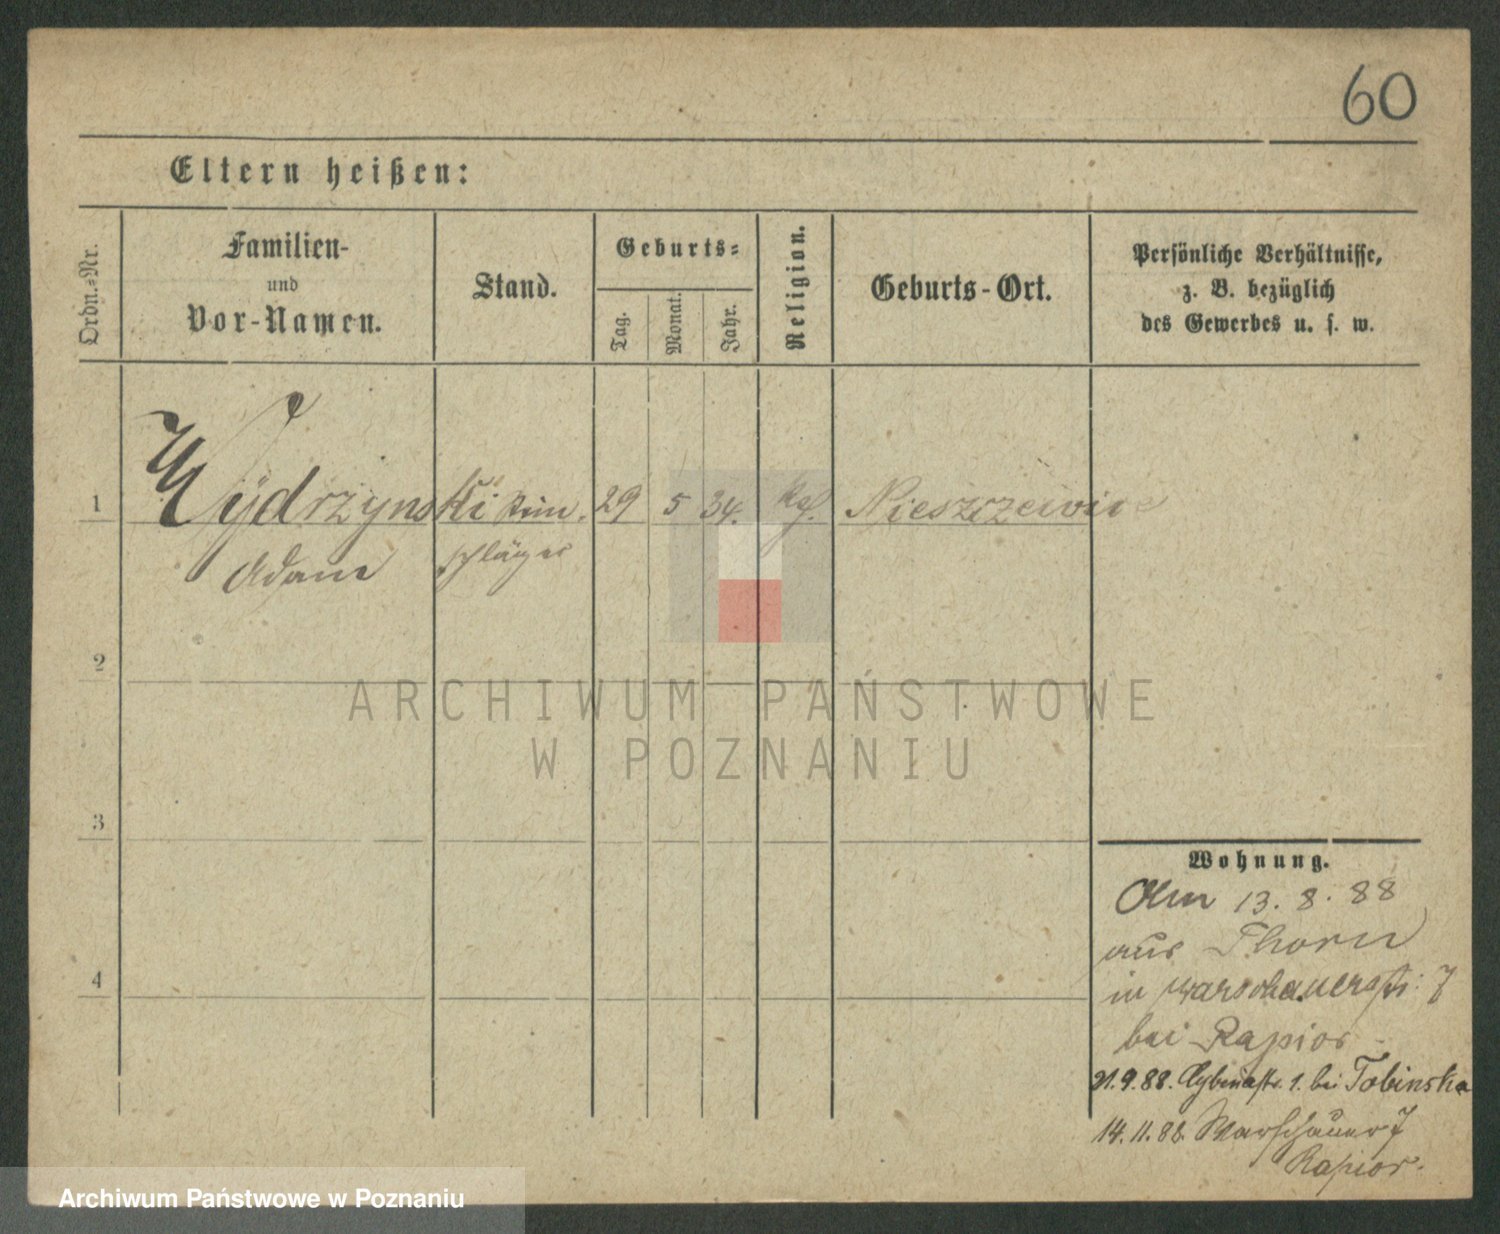 60
Eltern heißen:
Ordn.-Nr.
Familien-
und
Vor-Namen.
Stand.
Geburts-
Tag.
Monat.
Jahr.
Religion.
Geburts-Ort.
Persönliche Verhältnisse,
z. B. bezüglich
des Gewerbes u. s. w.
1 Wydrzynski 29 5 34. Nieszczewice
Adam schläger
2
3
4
ARCHIWUM PAŃSTWOWE
W POZNANIU
Wohnung.
13. 8. 88
aus Thorn
in Warschauerstr. 7
bei Rapior
21.9.88. 1. bei Tobinska
14.11.88. Warschauer 7
Rapior.
Archiwum Państwowe w Poznaniu